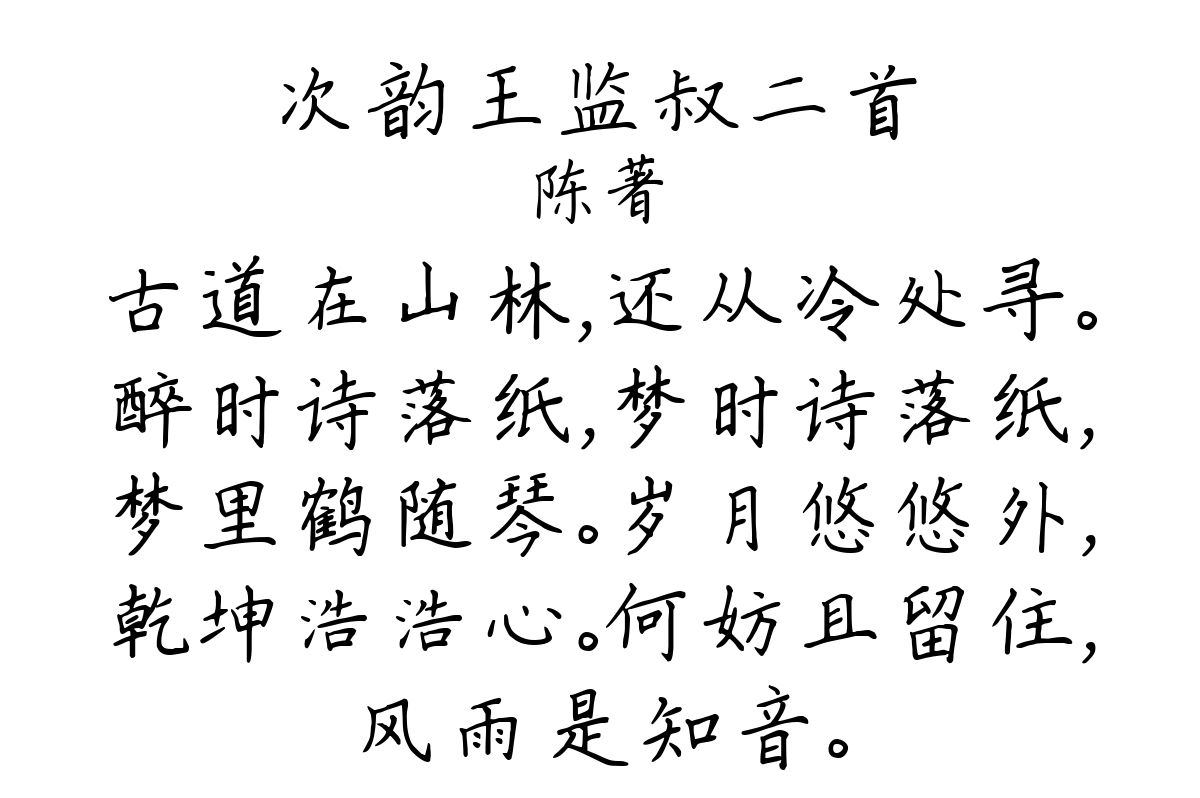 次韵王监叔二首
陈著
古道在山林,还从冷处寻。
醉时诗落纸,梦时诗落纸,
梦里鹤随琴。岁月悠悠外,
乾坤浩浩心。何妨且留住,
风雨是知音。